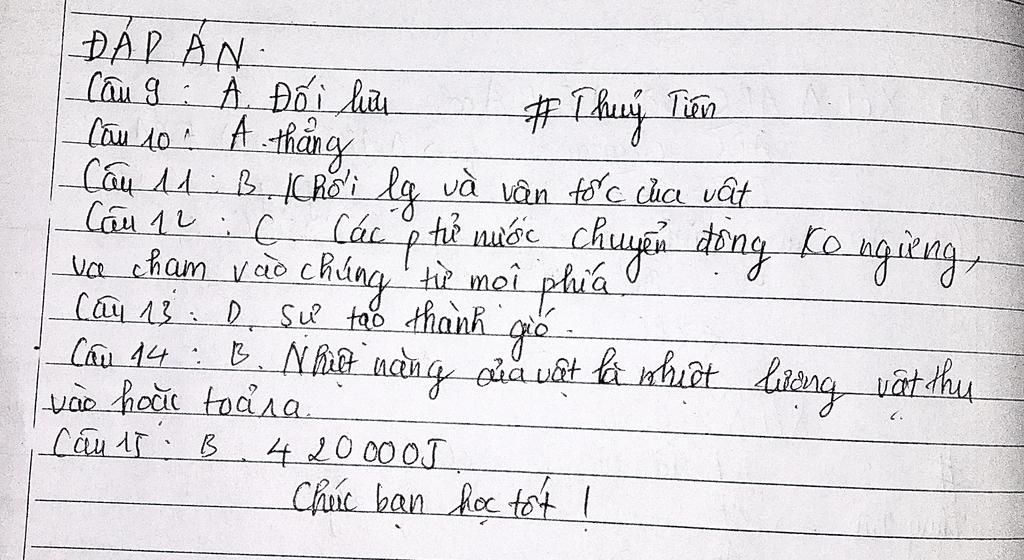 ĐÁP ÁN.
Câu 9 : A. Đối lưu # Thuỷ Tiên
Câu 10 : A. thẳng
Câu 11 : B. Khối lg và vận tốc của vật
Câu 12 : C. Các p tử nước chuyển động ko ngừng,
va chạm vào chúng từ mọi phía.
Câu 13 : D. Sự tạo thành gió.
Câu 14 : B. Nhiệt năng của vật là nhiệt lượng vật thu
vào hoặc toả ra.
Câu 15 : B. 420000J.
Chúc bạn học tốt !